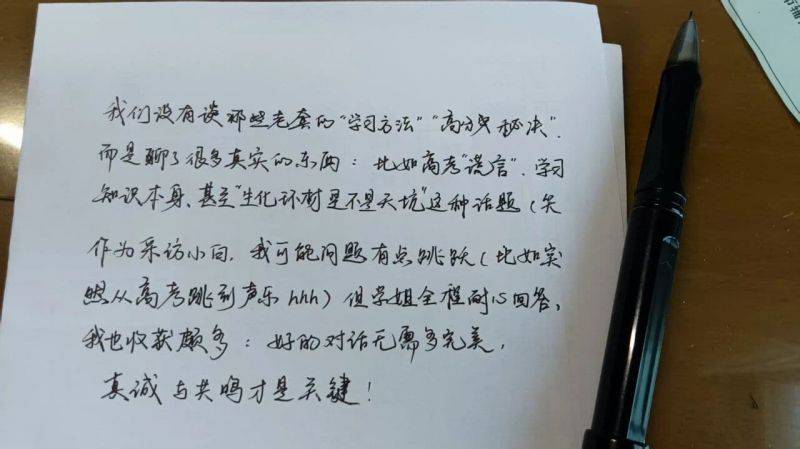 我们没有谈那些老套的“学习方法”“高分秘诀”.
而是聊了很多真实的东西：比如高考“谎言”.学习
知识本身、甚至“生化环材是不是天坑”这种话题（笑
作为采访小白.我可能问题有点跳跃（比如突
然从高考跳到声乐hhh）但学姐全程耐心回答,
我也收获颇多：好的对话无需多完美,
真诚与共鸣才是关键！